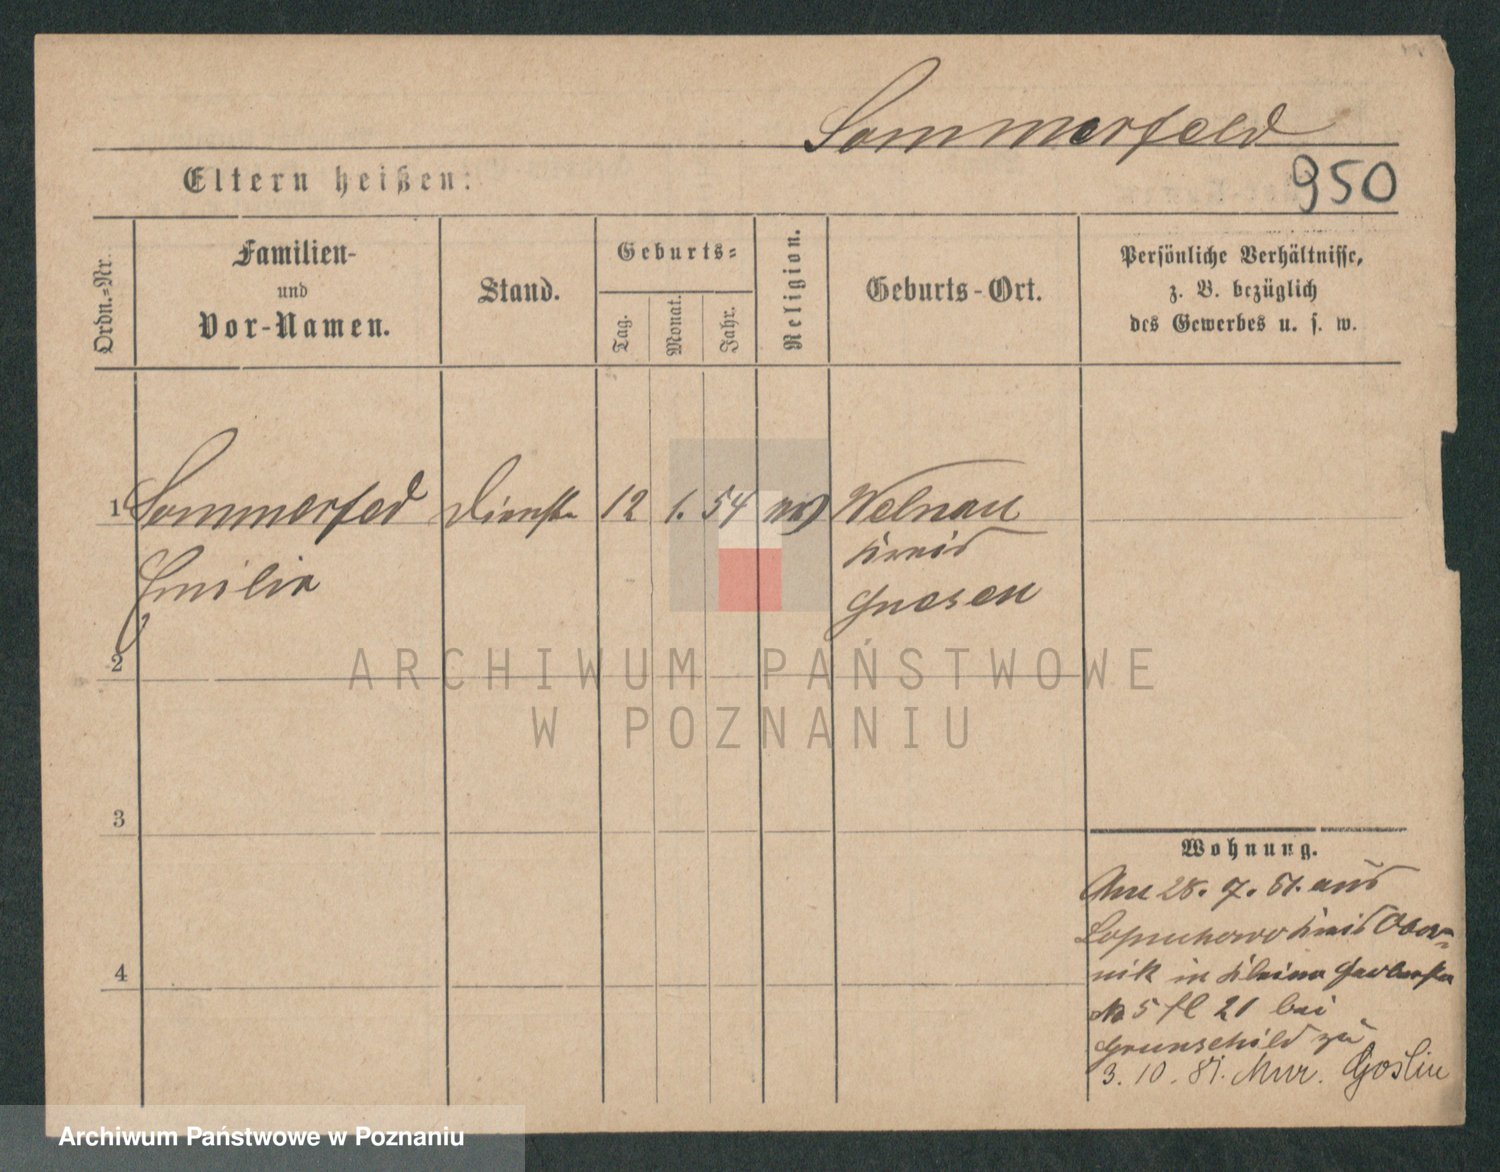 Sommerfeld
Eltern heißen:
950
Ordn.=Nr.
Familien-
und
Vor-Namen.
Stand.
Geburts=
Tag.
Monat.
Jahr.
Religion.
Geburts-Ort.
Persönliche Verhältnisse,
z. B. bezüglich
des Gewerbes u. s. w.
1 Sommerfed Dienstm 12 1. 54 Welnau
Kreis
Emilie
Gnesen
2
ARCHIWUM PAŃSTWOWE
W POZNANIU
3
Wohnung.
Am 28. 7. 81. aus
Lopuchowo Kreis Obor=
4
nik in kleine Gerberstr
No 5 fl 21 bei
Grunschild zu
3. 10. 81. Mur. Goslin
Archiwum Państwowe w Poznaniu